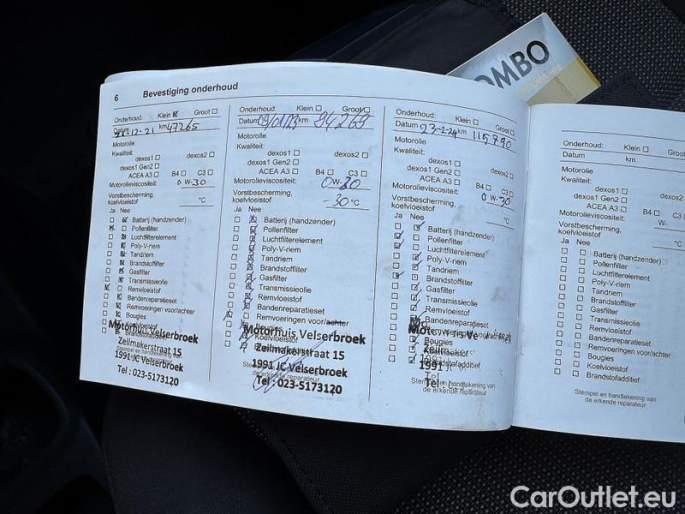 OMBO
6 Bevestiging onderhoud
Onderhoud: Klein Groot
Datum 12-21 km 47265
Motorolie
Kwaliteit:
dexos1 dexos2
dexos1 Gen2
ACEA A3 B4 C3
Motorolieviscositeit: 0 W-30
Vorstbescherming, koelvloeistof °C
Ja Nee
Batterij (handzender)
Pollenfilter
Luchtfilterelement
Poly-V-riem
Tandriem
Brandstoffilter
Gasfilter
Transmissieolie
Remvloeistof
Bandenreparatieset
Remvoeringen voor/achter
Bougies
Motorhuis Velserbroek
Zeilmakerstraat 15
1991 JC Velserbroek
Tel : 023-5173120
Onderhoud: Klein Groot
Datum km 84269
Motorolie
Kwaliteit:
dexos1 dexos2
dexos1 Gen2
ACEA A3 B4 C3
Motorolieviscositeit: 0 W-30
Vorstbescherming,
koelvloeistof 30 °C
Ja Nee
Batterij (handzender)
Pollenfilter
Luchtfilterelement
Poly-V-riem
Tandriem
Brandstoffilter
Gasfilter
Transmissieolie
Remvloeistof
Bandenreparatieset
Remvoeringen voor/achter
Motorhuis Velserbroek
Zeilmakerstraat 15
1991 JC Velserbroek
Tel : 023-5173120
Onderhoud: Klein Groot
Datum 23-2-24 km 115790
Motorolie
Kwaliteit:
dexos1 dexos2
dexos1 Gen2
ACEA A3 B4 C3
Motorolieviscositeit: 0 W-30
Vorstbescherming,
koelvloeistof °C
Ja Nee
Batterij (handzender)
Pollenfilter
Luchtfilterelement
Poly-V-riem
Tandriem
Brandstoffilter
Gasfilter
Transmissieolie
Remvloeistof
Bandenreparatieset
Bougies
1991
Tel :
Stempel en handtekening van
de erkende reparateur
Onderhoud: Klein Groot
Datum km
Motorolie
Kwaliteit:
dexos1
dexos1 Gen2
ACEA A3 B4
Motorolieviscositeit: W-
Vorstbescherming,
koelvloeistof
Ja Nee
Batterij (handzender)
Pollenfilter
Luchtfilterelement
Poly-V-riem
Tandriem
Brandstoffilter
Gasfilter
Transmissieolie
Remvloeistof
Bandenreparatieset
Remvoeringen voor/achter
Bougies
Brandstofadditief
Stempel en handtekening van
de erkende reparateur
CarOutlet.eu